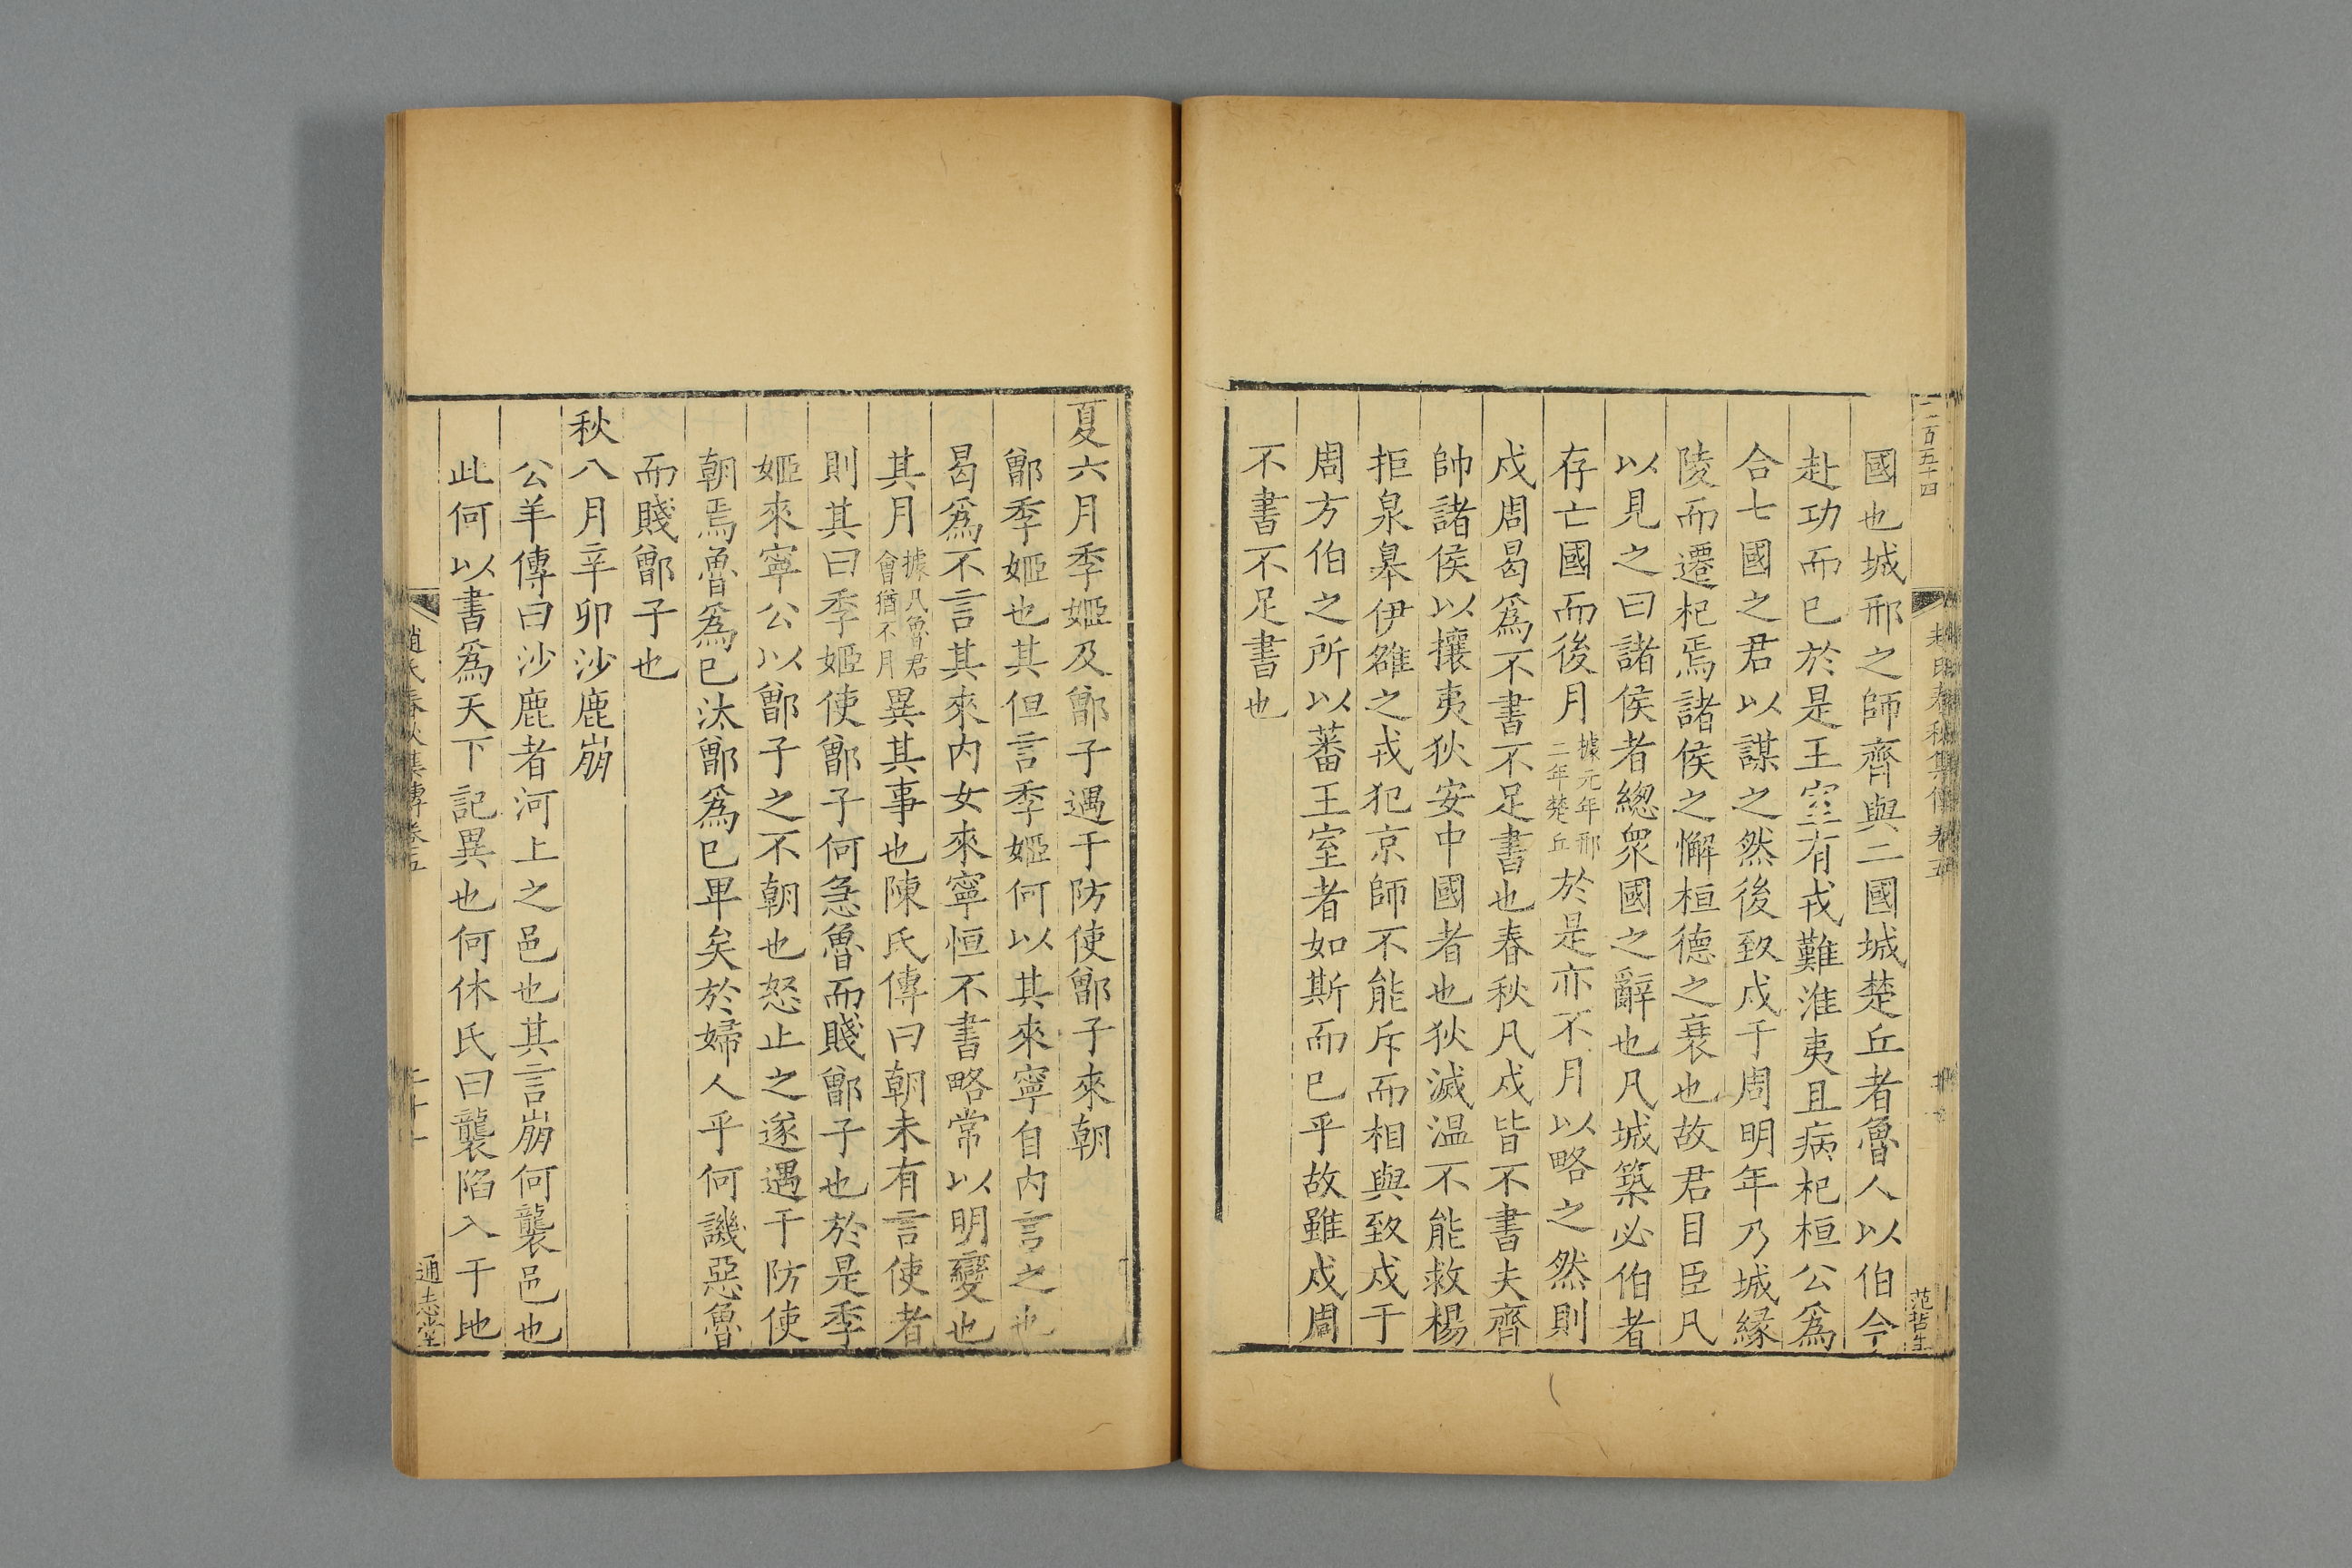 二百五十四
范哲生
國也城邢之師齊與二國城楚丘者魯人以伯令
赴功而已於是王室有戎難淮夷且病杞桓公爲
合七國之君以謀之然後致戍于周明年乃城緣
陵而遷杞焉諸侯之懈桓德之衰也故君目臣凡
以見之曰諸侯者總衆國之辭也凡城築必伯者
存亡國而後月據元年邢二年楚丘於是亦不月以略之然則
戍周曷爲不書不足書也春秋凡戍皆不書夫齊
帥諸侯以攘夷狄安中國者也狄滅温不能救楊
拒泉皋伊雒之戎犯京師不能斥而相與致戍于
周方伯之所以蕃王室者如斯而已乎故雖戍周
不書不足書也
夏六月季姬及鄫子遇于防使鄫子來朝
鄫季姬也其但言季姬何以其來寧自内言之也
曷爲不言其來内女來寧恒不書略常以明變也
其月據凡魯君會猶不月異其事也陳氏傳曰朝未有言使者
則其曰季姬使鄫子何急魯而賤鄫子也於是季
姬來寧公以鄫子之不朝也怒止之遂遇于防使
朝焉魯爲已汰鄫爲已卑矣於婦人乎何譏惡魯
而賤鄫子也
秋八月辛卯沙鹿崩
公羊傳曰沙鹿者河上之邑也其言崩何襲邑也
此何以書爲天下記異也何休氏曰襲陷入于地
趙氏春秋集傳卷五
通志堂